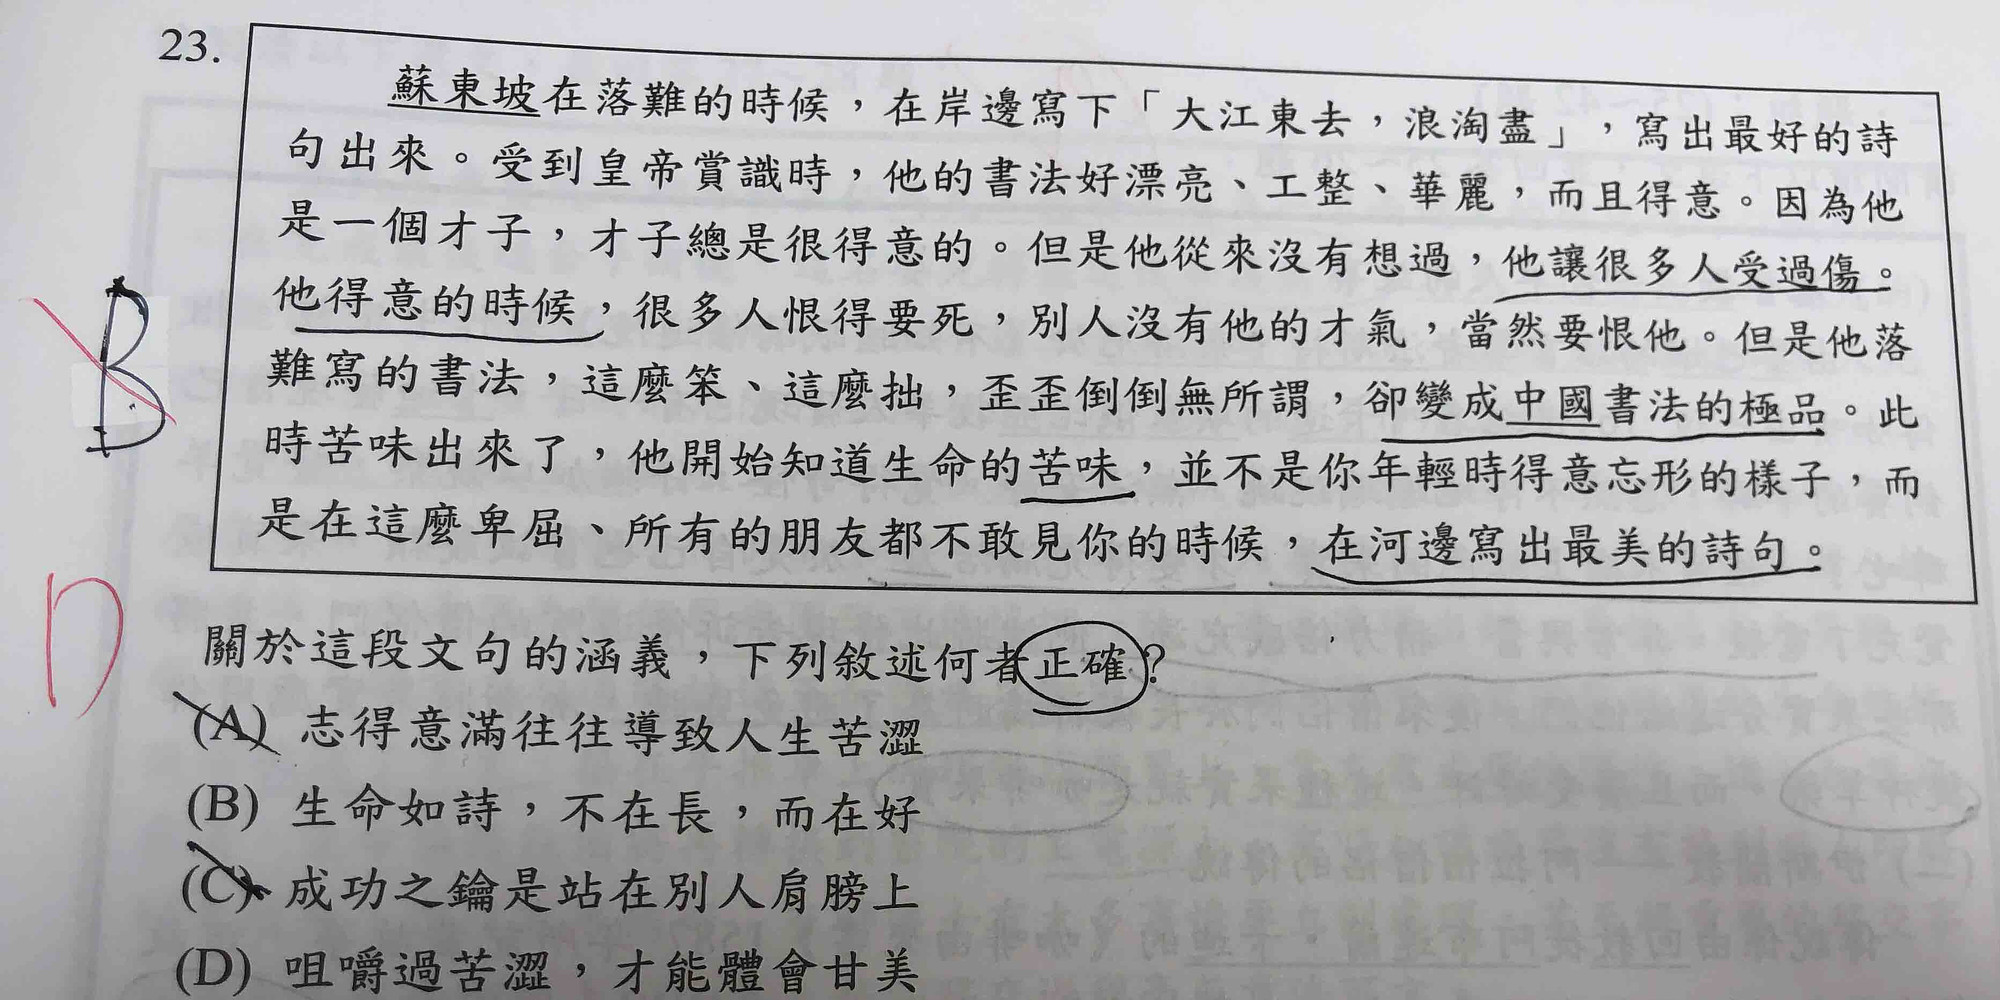 23.
蘇東坡在落難的時候，在岸邊寫下「大江東去，浪淘盡」，寫出最好的詩
句出來。受到皇帝賞識時，他的書法好漂亮、工整、華麗，而且得意。因為他
是一個才子，才子總是很得意的。但是他從來沒有想過，他讓很多人受過傷。
他得意的時候，很多人恨得要死，別人沒有他的才氣，當然要恨他。但是他落
難寫的書法，這麼笨、這麼拙，歪歪倒倒無所謂，卻變成中國書法的極品。此
時苦味出來了，他開始知道生命的苦味，並不是你年輕時得意忘形的樣子，而
是在這麼卑屈、所有的朋友都不敢見你的時候，在河邊寫出最美的詩句。
B
D
關於這段文句的涵義，下列敘述何者正確？
(A) 志得意滿往往導致人生苦澀
(B) 生命如詩，不在長，而在好
(C) 成功之鑰是站在別人肩膀上
(D) 咀嚼過苦澀，才能體會甘美